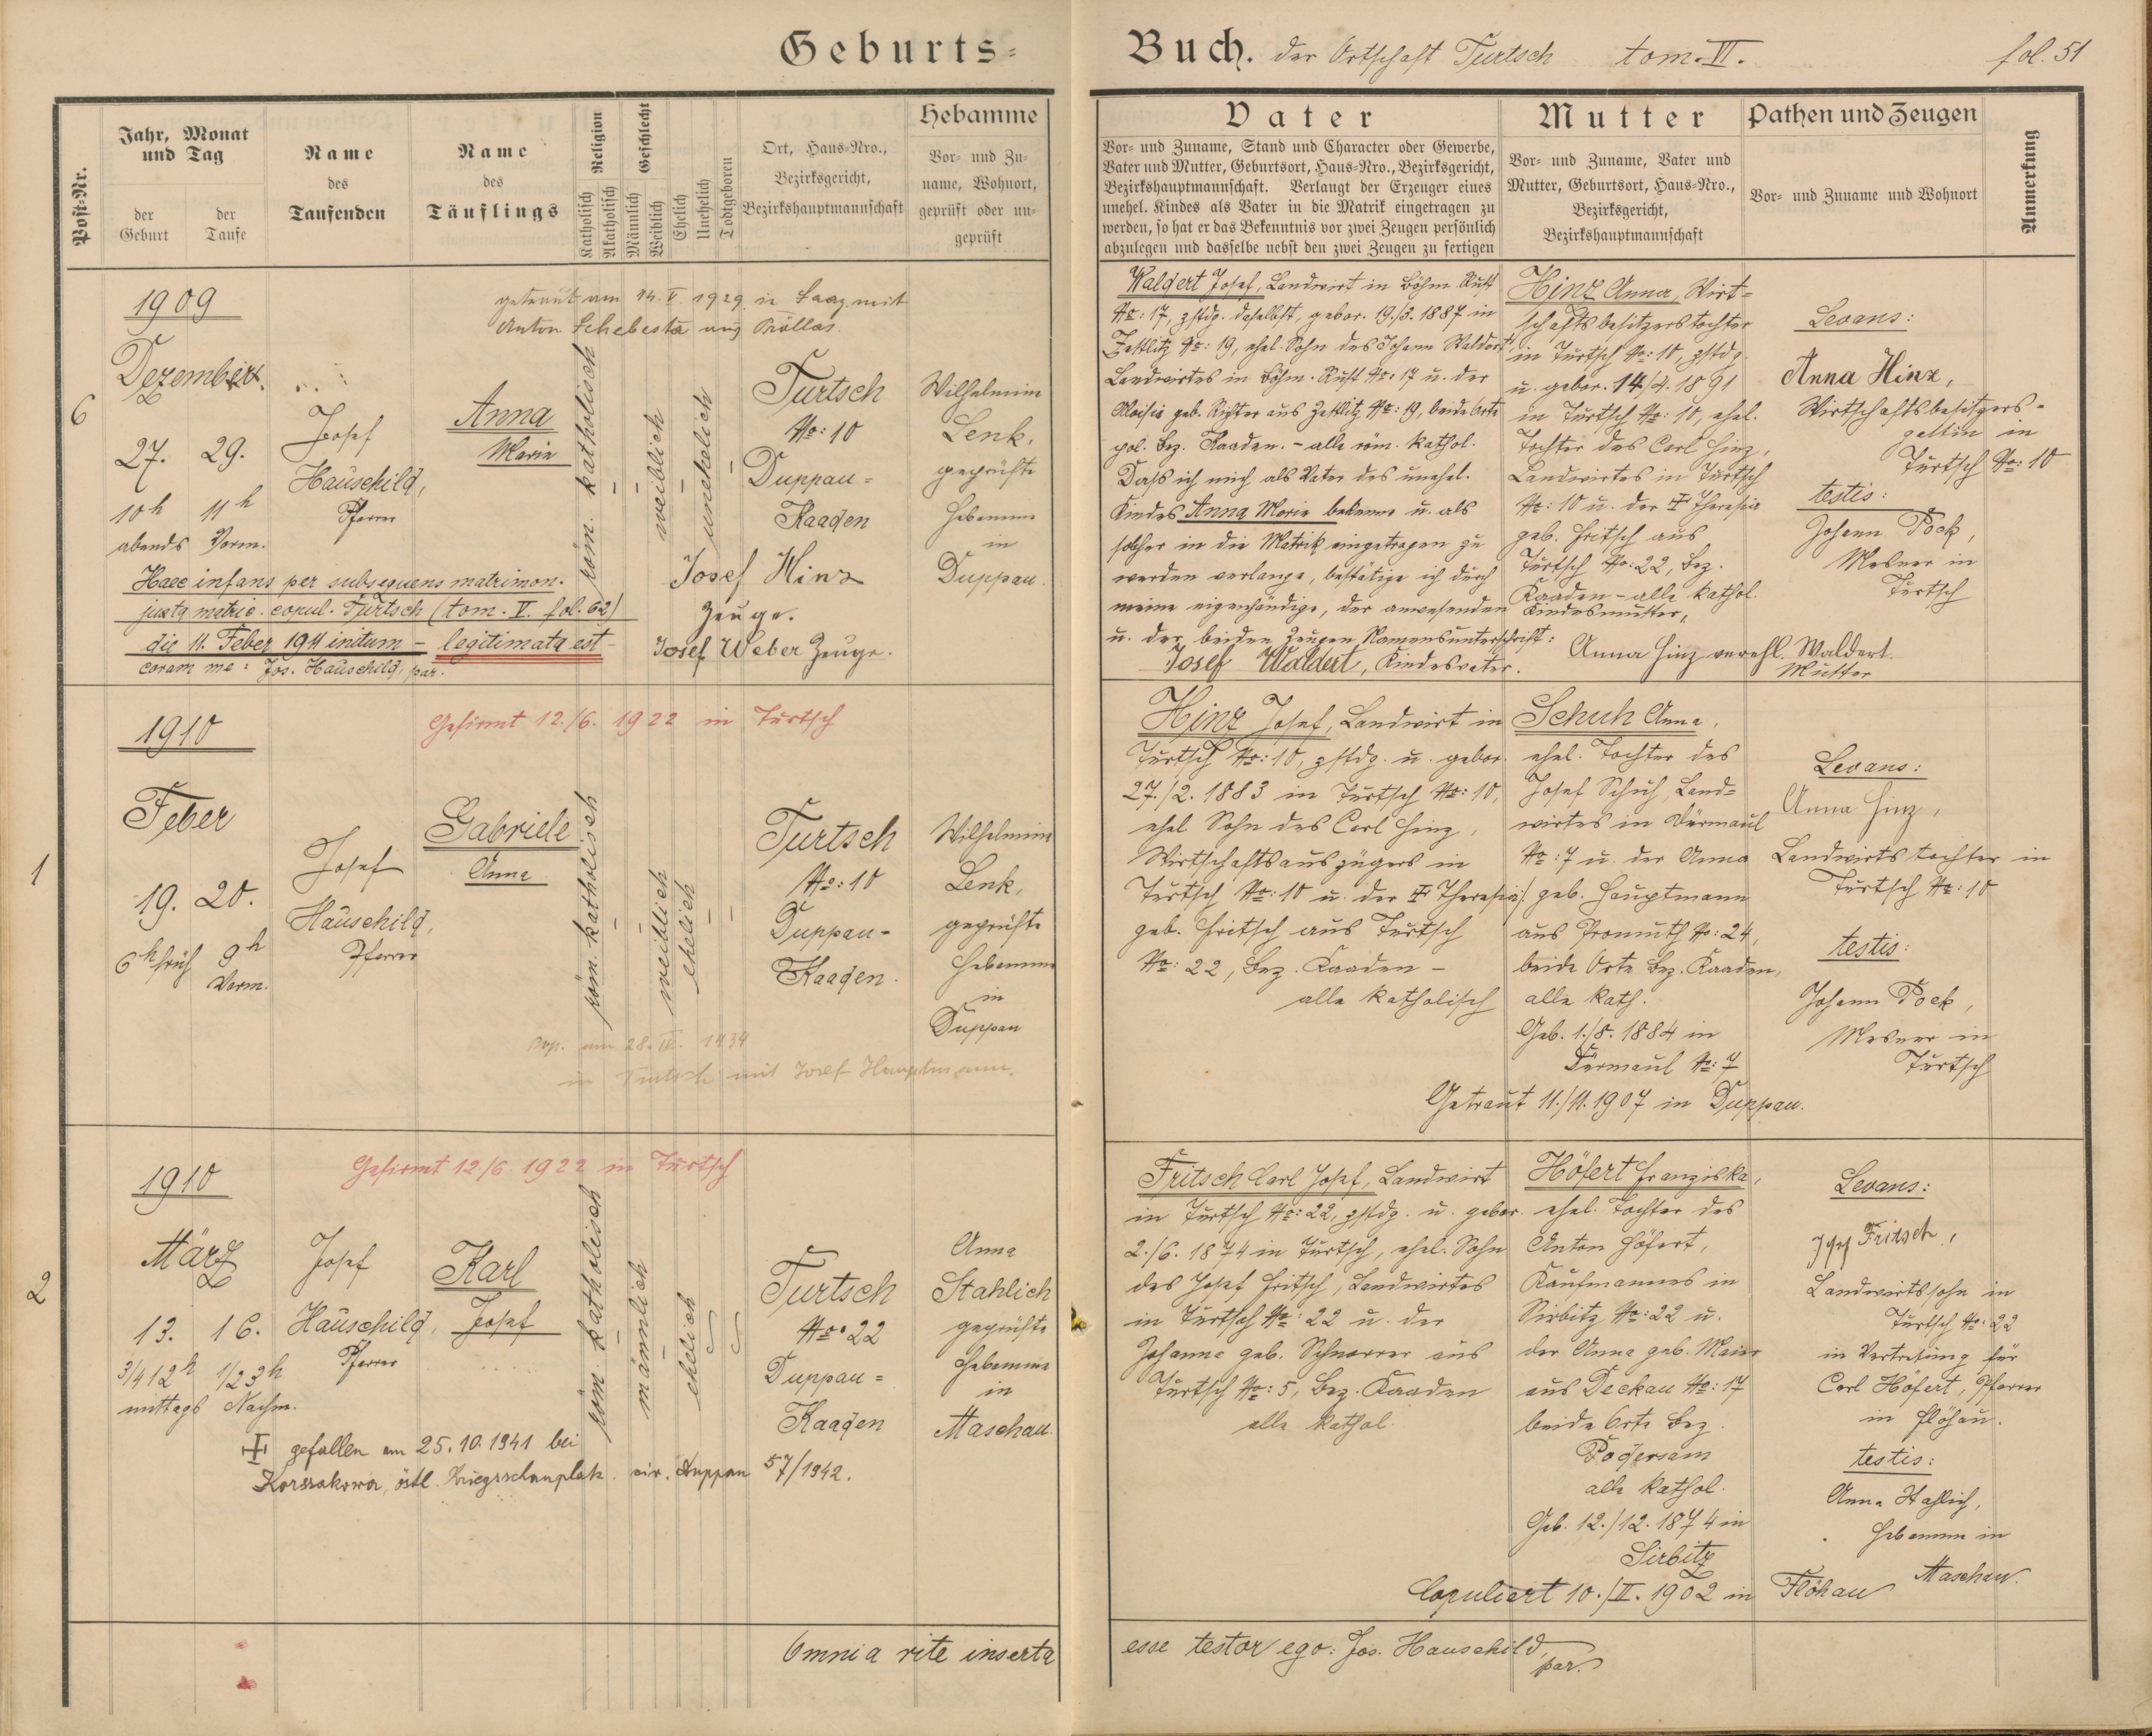 Geburts-
Buch. der Ortschaft Turtsch tom. VI. fol. 51
Post-Nr.
Jahr, Monat
und Tag
der
Geburt
der
Taufe
Name
des
Taufenden
Name
des
Täuflings
Religion
Katholisch
Akatholisch
Geschlecht
Männlich
Weiblich
Ehelich
Unehelich
Todtgeboren
Ort, Haus-Nro.,
Bezirksgericht,
Bezirkshauptmannschaft
Hebamme
Vor- und Zu-
name, Wohnort,
geprüft oder un-
geprüft
Vater
Vor- und Zuname, Stand und Character oder Gewerbe,
Vater und Mutter, Geburtsort, Haus-Nro., Bezirksgericht,
Bezirkshauptmannschaft. Verlangt der Erzeuger eines
unehel. Kindes als Vater in die Matrik eingetragen zu
werden, so hat er das Bekenntnis vor zwei Zeugen persönlich
abzulegen und dasselbe nebst den zwei Zeugen zu fertigen
Mutter
Vor- und Zuname, Vater und
Mutter, Geburtsort, Haus-Nro.,
Bezirksgericht,
Bezirkshauptmannschaft
Pathen und Zeugen
Vor- und Zuname und Wohnort
Anmerkung
6
1909
Dezember
27. 29.
10h 11h
abends Vorm.
getraut am 14. V. 1929 in Saaz mit
Anton Schebesta aus
Josef
Hauschild,
Pfarrer
Anna
Maria
röm. katholisch
weiblich
unehelich
Turtsch
No: 10
Duppau-
Kaaden
Wilhelmine
Lenk,
geprüfte
Hebamme
in
Duppau.
Haec infans per subsequens matrimon.
juxta matric. copul. Turtsch (tom. V. fol. 62)
die 11. Feber 1911 initum - legitimata est -
coram me: Jos. Hauschild, par.
Josef Hinz
Zeuge.
Josef Weber Zeuge.
Waldert Josef, Landwirt in Böhm. Rust
No: 17, zstdg. daselbst, gebor. 19./3. 1887 in
Zettlitz No: 19, ehel. Sohn des Johann Waldert
Landwirtes in Böhm. Rust No: 17 u. der
Aloisia geb. Richter aus Zettlitz No: 19, beide Orte
pol. Bez. Kaaden. - alle röm. kathol.
Dass ich mich als Vater des unehel.
Kindes Anna Maria bekenne u. als
solcher in die Matrik eingetragen zu
werden verlange, bestätige ich durch
meine eigenhändige, der anwesenden Kindesmutter,
u. der beiden Zeugen Namensunterschrift:
Josef Waldert, Kindesvater.
Hinz Anna, Wirt-
schaftsbesitzerstochter
in Turtsch No: 10, zstdg.
u. gebor. 14/4. 1891
in Turtsch No: 10, ehel.
Tochter des Carl Hinz,
Landwirtes in Turtsch
No: 10 u. der † Theresia
geb. Fritsch aus
Turtsch No: 22, Bez.
Kaaden - alle kathol.
Anna Hinz verehl. Waldert.
Mutter
Levans:
Anna Hinz,
Wirtschaftsbesitzers-
gattin in
Turtsch No: 10
testis:
Johann Pock,
Mesner in
Turtsch
1
1910
Feber
19. 20.
6h früh 9h
Vorm.
Gefirmt 12./6. 1922 in Turtsch
Josef
Hauschild,
Pfarrer
Gabriele
Anna
röm. katholisch
weiblich
ehelich
Turtsch
No: 10
Duppau-
Kaaden.
Wilhelmine
Lenk,
geprüfte
Hebamme
in
Duppau
cop. am 28. 1934
in Turtsch mit Josef Hauptmann.
Hinz Josef, Landwirt in
Turtsch No: 10, zstdg. u. gebor.
27./2. 1883 in Turtsch No: 10,
ehel. Sohn des Carl Hinz,
Wirtschaftsauszügers in
Turtsch No: 10 u. der † Theresia
geb. Fritsch aus Turtsch
No: 22, Bez. Kaaden -
alle katholisch
Schuh Anna,
ehel. Tochter des
Josef Schuh, Land-
wirtes in Dürmaul
No: 7 u. der Anna
geb. Hauptmann
aus Promuth No: 24,
beide Orte Bez. Kaaden,
alle kath.
Geb. 1./8. 1884 in
Dürmaul No: 7
Getraut 11./11. 1907 in Duppau.
Levans:
Anna Hinz,
Landwirtstochter in
Turtsch No: 10
testis:
Johann Pock,
Mesner in
Turtsch
2
1910
März
13. 16.
3/4 12h 1/2 3h
mittags Nachm.
Gefirmt 12./6. 1922 in Turtsch
Josef
Hauschild,
Pfarrer
Karl
Josef
röm. katholisch
männlich
ehelich
Turtsch
No: 22
Duppau-
Kaaden
Anna
Stahlich
geprüfte
Hebamme
in
Maschau.
† gefallen am 25.10.1941 bei
Korssakowa, östl. Kriegsschauplatz. Duppau 57/1942.
Fritsch Carl Josef, Landwirt
in Turtsch No: 22, zstdg. u. gebor.
2./6. 1874 in Turtsch, ehel. Sohn
des Josef Fritsch, Landwirtes
in Turtsch No: 22 u. der
Johanna geb. Schnorrer aus
Turtsch No: 5, Bez. Kaaden
alle kathol.
Höfert Franziska,
ehel. Tochter des
Anton Höfert,
Kaufmannes in
Sirbitz No: 22 u.
der Anna geb. Maier
aus Deckau No: 17
beide Orte Bez.
Podersam
alle kathol.
Geb. 12./12. 1874 in
Sirbitz
Copuliert 10./II. 1902 in Flöhau
Levans:
Fritsch,
Landwirtssohn in
Turtsch No: 22
in Vertretung für
Carl Höfert, Pfarrer
in Flöhau.
testis:
Anna Stahlich,
Hebamme in
Maschau.
Omnia rite inserta
esse testor ego: Jos. Hauschild,
par.